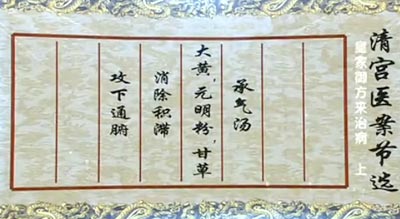 清宫医案节选
皇家御方来治病 上
承气汤
大黄，元明粉，甘草
消除积滞
攻下通腑